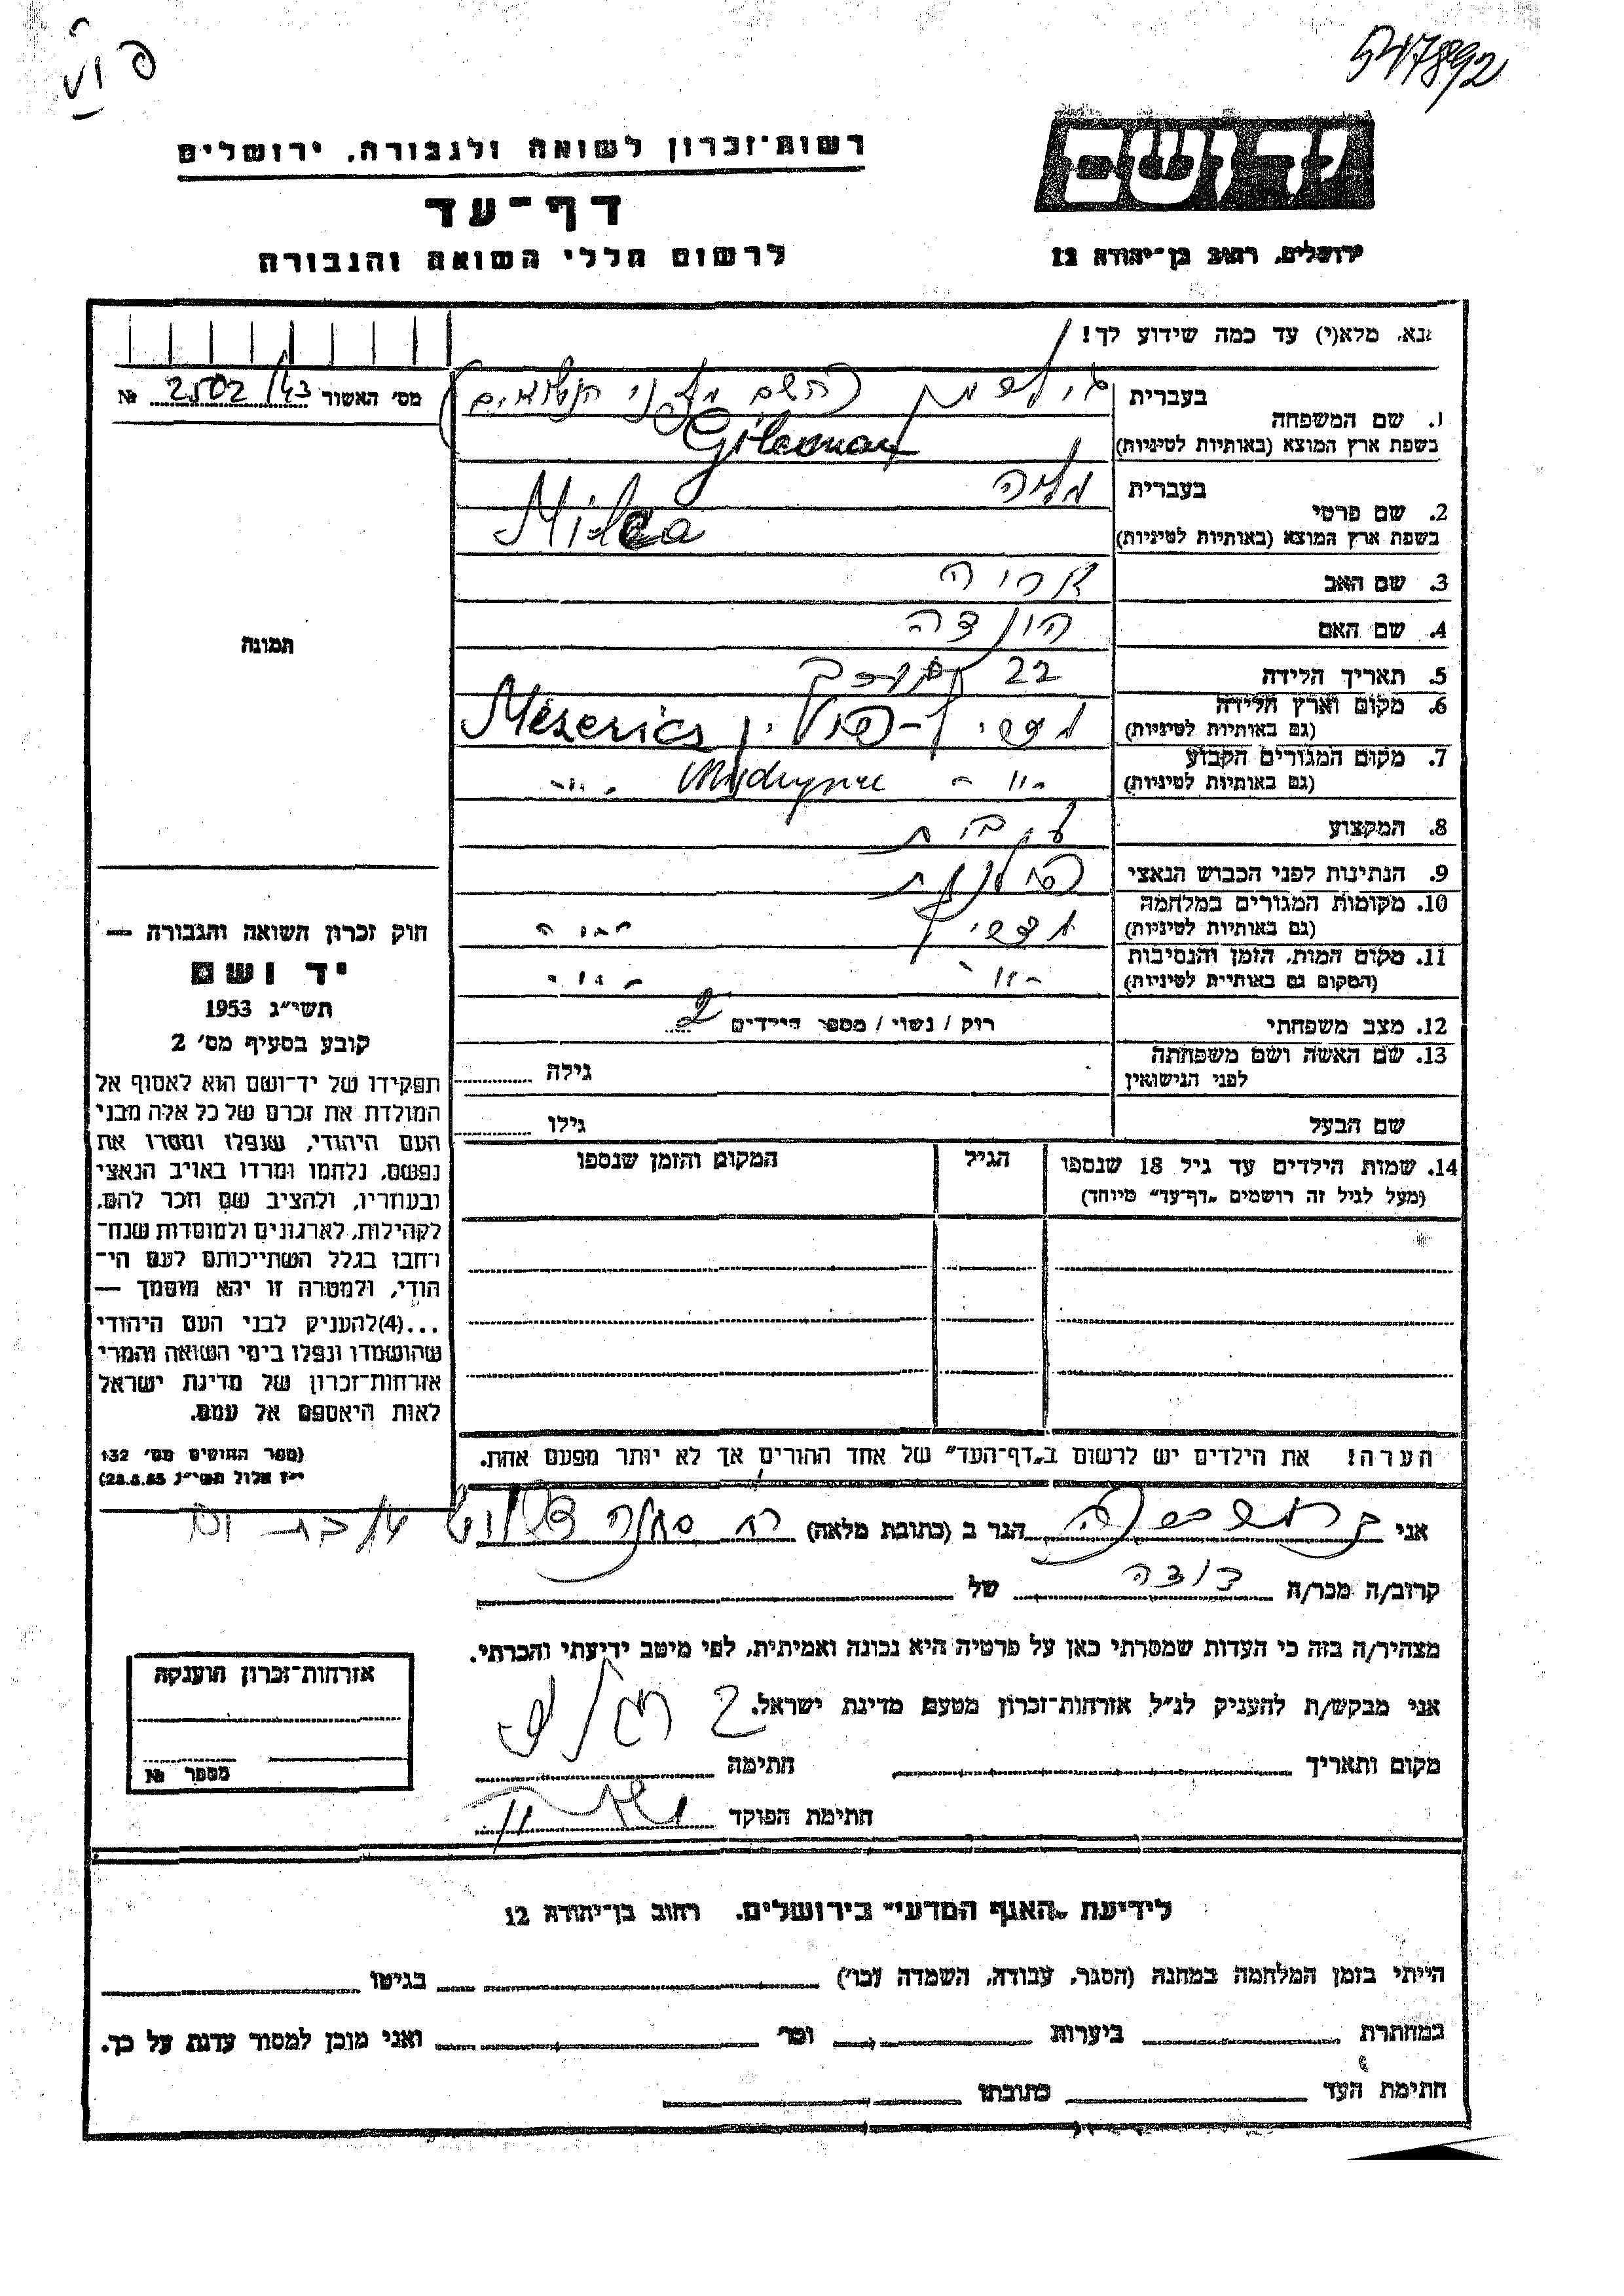 547892
רשות־זכרון לשואה ולגבורה, ירושלים
דף־עד
לרשום חללי השואה והגבורה
יד ושם
ירושלים, רחוב בן־יהודה 12
נא, מלא(י) עד כמה שידוע לך!
מס׳ האשור 2502/43 №
1. שם המשפחה
בעברית
בשפת ארץ המוצא (באותיות לטיניות)
2. שם פרטי
בעברית
בשפת ארץ המוצא (באותיות לטיניות) Milca
3. שם האב אריה
4. שם האם
5. תאריך הלידה 22
6. מקום וארץ הלידה
(גם באותיות לטיניות) Meserics
7. מקום המגורים הקבוע
(גם באותיות לטיניות) -״-
8. המקצוע
9. הנתינות לפני הכבוש הנאצי פולנית
10. מקומות המגורים במלחמה
(גם באותיות לטיניות)
11. מקום המות, הזמן והנסיבות
(המקום גם באותיות לטיניות) -״- -״-
12. מצב משפחתי רוק / נשוי / מספר הילדים 2
13. שם האשה ושם משפחתה
לפני הנישואין גילה
שם הבעל גילו
14. שמות הילדים עד גיל 18 שנספו
(מעל לגיל זה רושמים „דף־עד״ מיוחד)
הגיל
המקום והזמן שנספו
הערה! את הילדים יש לרשום ב„דף־העד״ של אחד ההורים אך לא יותר מפעם אחת.
תמונה
חוק זכרון השואה והגבורה —
יד ושם
תשי״ג 1953
קובע בסעיף מס׳ 2
תפקידו של יד־ושם הוא לאסוף אל
המולדת את זכרם של כל אלה מבני
העם היהודי, שנפלו ומסרו את
נפשם, נלחמו ומרדו באויב הנאצי
ובעוזריו, ולהציב שם וזכר להם,
לקהילות, לארגונים ולמוסדות שנח־
רבו בגלל השתייכותם לעם הי־
הודי, ולמטרה זו יהא מוסמך —
...(4)להעניק לבני העם היהודי
שהושמדו ונפלו בימי השואה והמרי
אזרחות־זכרון של מדינת ישראל
לאות היאספם אל עמם.
(ספר החוקים מס׳ 132
י״ז אלול תשי״ג 28.8.53)
אני הגר ב (כתובת מלאה)
קרוב/ה מכר/ה דודה של
מצהיר/ה בזה כי העדות שמסרתי כאן על פרטיה היא נכונה ואמיתית, לפי מיטב ידיעתי והכרתי.
אני מבקש/ת להעניק לנ״ל אזרחות־זכרון מטעם מדינת ישראל.
מקום ותאריך חתימה
חתימת הפוקד
אזרחות־זכרון הוענקה
מספר №
לידיעת „האגף המדעי״ בירושלים, רחוב בן־יהודה 12
הייתי בזמן המלחמה במחנה (הסגר, עבודה, השמדה וכו׳) בגיטו
במחתרת ביערות וכו׳ ואני מוכן למסור עדות על כך.
חתימת העד כתובתו